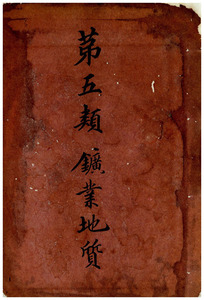 第五類 鑛業地质